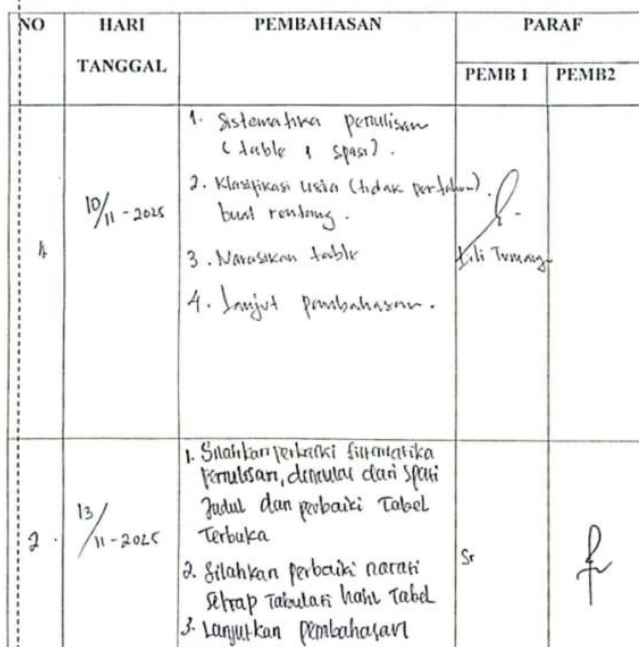 NO HARI TANGGAL PEMBAHASAN PARAF
PEMB 1 PEMB2
10/11 - 2025
1. Sistematika penulisan
(table 1 spasi).
2. Klasifikasi usia (tidak pertahun)
buat rentang.
3. Narasikan table
4. Lanjut pembahasan.
2. 13/11-2025
1. Silahkan perbaiki sistematika
penulisan, dimulai dari spasi
Judul dan perbaiki Tabel
Terbuka
2. Silahkan perbaiki narasi
setiap Tabulasi hasil Tabel
3. Lanjutkan pembahasan
Sr